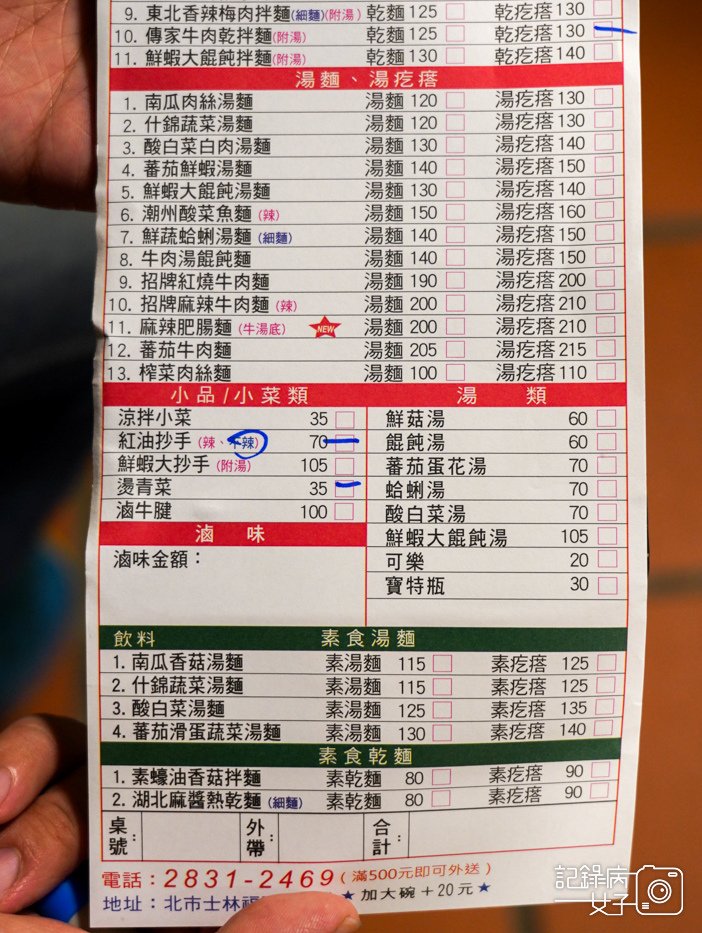 9. 東北香辣梅肉拌麵(細麵)(附湯) 乾麵125 乾疙瘩130
10. 傳家牛肉乾拌麵(附湯) 乾麵125 乾疙瘩130
11. 鮮蝦大餛飩拌麵(附湯) 乾麵130 乾疙瘩140
湯麵、湯疙瘩
1. 南瓜肉絲湯麵 湯麵120 湯疙瘩130
2. 什錦蔬菜湯麵 湯麵120 湯疙瘩130
3. 酸白菜白肉湯麵 湯麵130 湯疙瘩140
4. 蕃茄鮮蝦湯麵 湯麵140 湯疙瘩150
5. 鮮蝦大餛飩湯麵 湯麵130 湯疙瘩140
6. 潮州酸菜魚麵(辣) 湯麵150 湯疙瘩160
7. 鮮蔬蛤蜊湯麵(細麵) 湯麵140 湯疙瘩150
8. 牛肉湯餛飩麵 湯麵140 湯疙瘩150
9. 招牌紅燒牛肉麵 湯麵190 湯疙瘩200
10. 招牌麻辣牛肉麵(辣) 湯麵200 湯疙瘩210
11. 麻辣肥腸麵(牛湯底) NEW 湯麵200 湯疙瘩210
12. 蕃茄牛肉麵 湯麵205 湯疙瘩215
13. 榨菜肉絲麵 湯麵100 湯疙瘩110
小品/小菜類
涼拌小菜 35
紅油抄手(辣、不辣) 70
鮮蝦大抄手(附湯) 105
燙青菜 35
滷牛腱 100
滷味
滷味金額：
湯類
鮮菇湯 60
餛飩湯 60
蕃茄蛋花湯 70
蛤蜊湯 70
酸白菜湯 70
鮮蝦大餛飩湯 105
可樂 20
寶特瓶 30
飲料 素食湯麵
1. 南瓜香菇湯麵 素湯麵 115 素疙瘩 125
2. 什錦蔬菜湯麵 素湯麵 115 素疙瘩 125
3. 酸白菜湯麵 素湯麵 125 素疙瘩 135
4. 蕃茄滑蛋蔬菜湯麵 素湯麵 130 素疙瘩 140
素食乾麵
1. 素蠔油香菇拌麵 素乾麵 80 素疙瘩 90
2. 湖北麻醬熱乾麵(細麵) 素乾麵 80 素疙瘩 90
桌號： 外帶： 合計：
電話：2831-2469(滿500元即可外送)
地址：北市士林福 ★加大碗+20元★
記錄病
女子